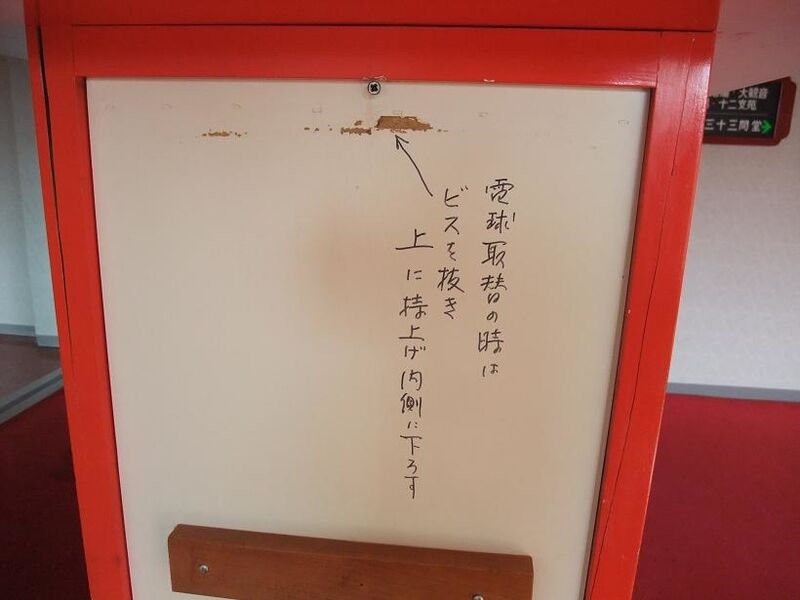 電球取替の時は
ビスを抜き
上に持上げ内側に下ろす
・大観音
・十二支苑
三十三間堂